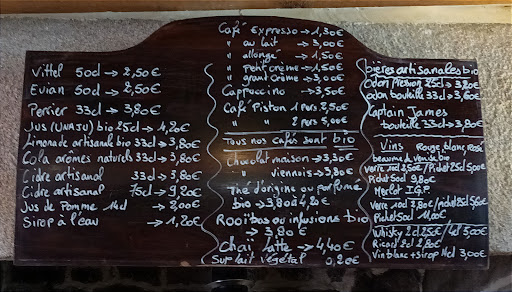 Vittel 50cl → 2,50€
Evian 50cl → 2,50€
Perrier 33cl → 3,80€
Jus (UNAJU) bio 25cl → 4,20€
Limonade artisanale bio 33cl → 3,80€
Cola arômes naturels 33cl → 3,80€
Cidre artisanal 33cl → 3,80€
Cidre artisanal 75cl → 9,20€
Jus de Pomme 14cl → 2,00€
Sirop à l'eau → 1,20€
Café Expresso → 1,30€
" au lait → 3,00€
" allongé → 1,50€
" petit crème → 1,50€
" grand crème → 3,00€
Cappuccino → 3,50€
Café Piston 1 pers 2,50€
" " 2 pers 5,00€
Tous nos cafés sont bio
Chocolat maison → 3,30€
" viennois → 3,80€
Thé d'origine ou parfumé
bio → 3,80 à 4,20€
Rooïbos ou infusions bio
→ 3,80€
Chai latte → 4,40€
Sup lait végétal 0,20€
bières artisanales bio
Odon pression 25cl 3,80€
Odon bouteille 33cl → 3,60€
Captain James
bouteille 33cl → 3,80€
Vins Rouge, blanc, Rosé
beaume de Venise bio
verre 10cl 2,50€ / Pichet 25cl 5,00€
Pichet 50cl 9,80€
Merlot I.G.P.
verre 10cl 3,80€ / pichet 25cl 5,50€
Pichet 50cl 11,00€
Whisky 2cl 2,50€ / 4cl 5,00€
Ricard 2cl 2,80€
Vin blanc + sirop 14cl 3,00€